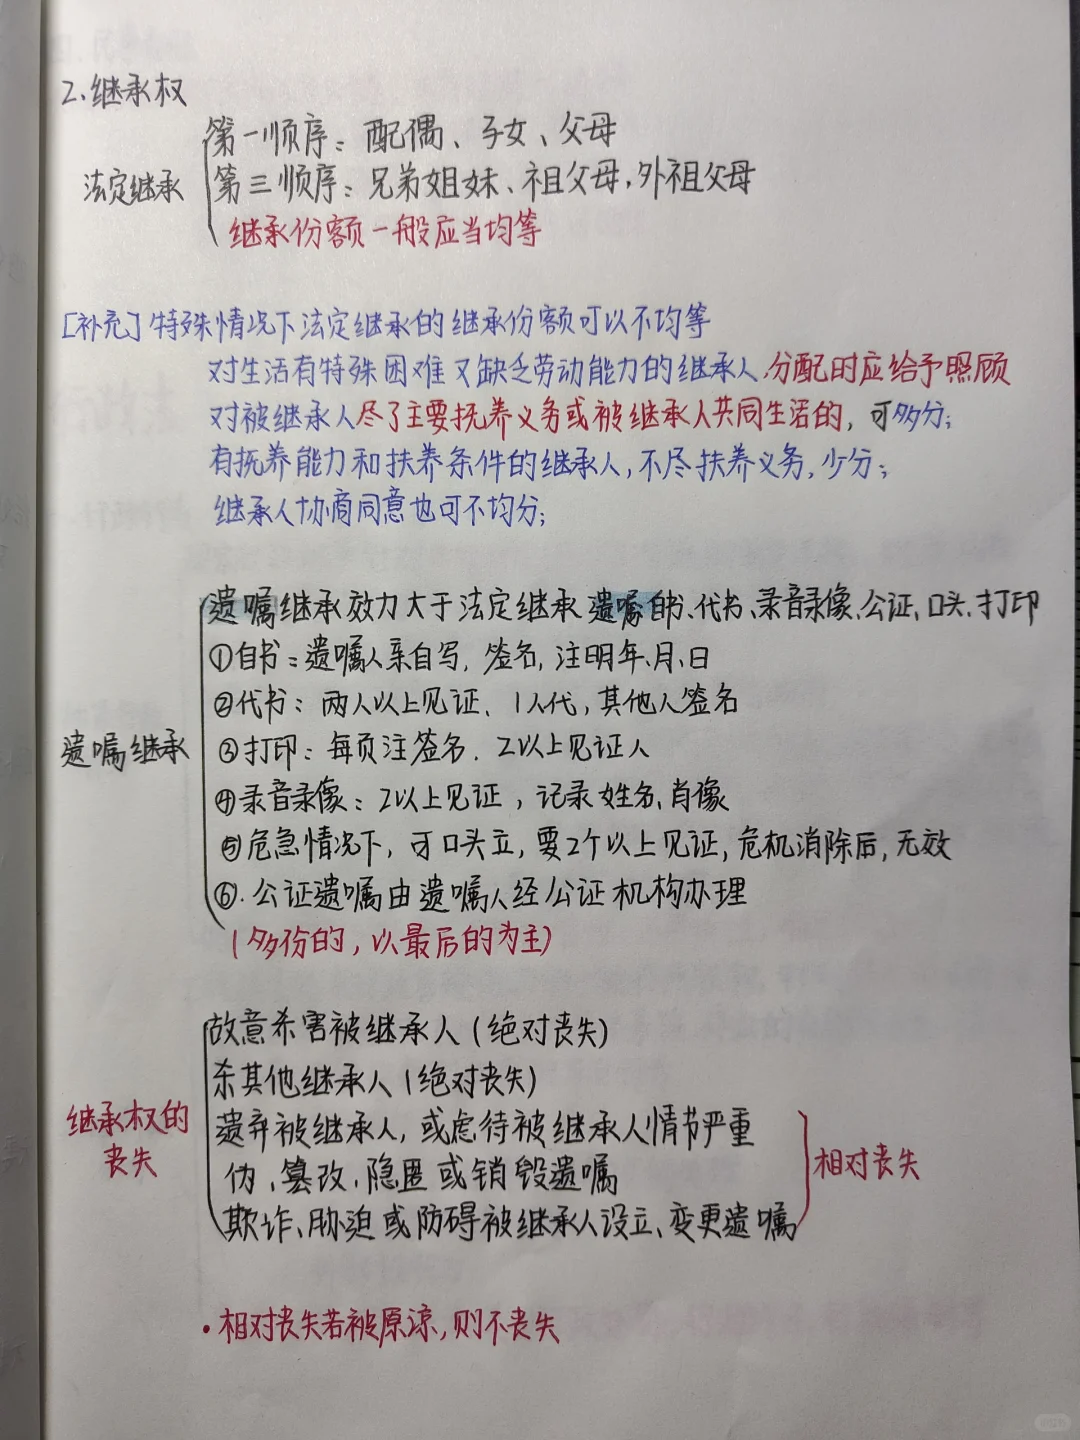 2.继承权
第一顺序：配偶、子女、父母
法定继承
第三顺序：兄弟姐妹、祖父母,外祖父母
继承份额一般应当均等
[补充]特殊情况下法定继承的继承份额可以不均等
对生活有特殊困难又缺乏劳动能力的继承人分配时应给予照顾
对被继承人尽了主要抚养义务或被继承人共同生活的,可多分;
有抚养能力和扶养条件的继承人,不尽扶养义务,少分;
继承人协商同意也可不均分;
遗嘱继承效力大于法定继承 遗嘱自书、代书、录音录像、公证、口头、打印
①自书：遗嘱人亲自写,签名,注明年、月、日
②代书：两人以上见证、1人代,其他人签名
遗嘱继承
③打印：每页注签名.2以上见证人
④录音录像：2以上见证,记录姓名、肖像
⑤危急情况下,可口头立,要2个以上见证,危机消除后,无效
⑥.公证遗嘱由遗嘱人经公证机构办理
(多份的,以最后的为主)
故意杀害被继承人(绝对丧失)
杀其他继承人(绝对丧失)
继承权的
丧失
遗弃被继承人,或虐待被继承人情节严重
伪、篡改、隐匿或销毁遗嘱
相对丧失
欺诈、胁迫或防碍被继承人设立、变更遗嘱
·相对丧失若被原谅,则不丧失